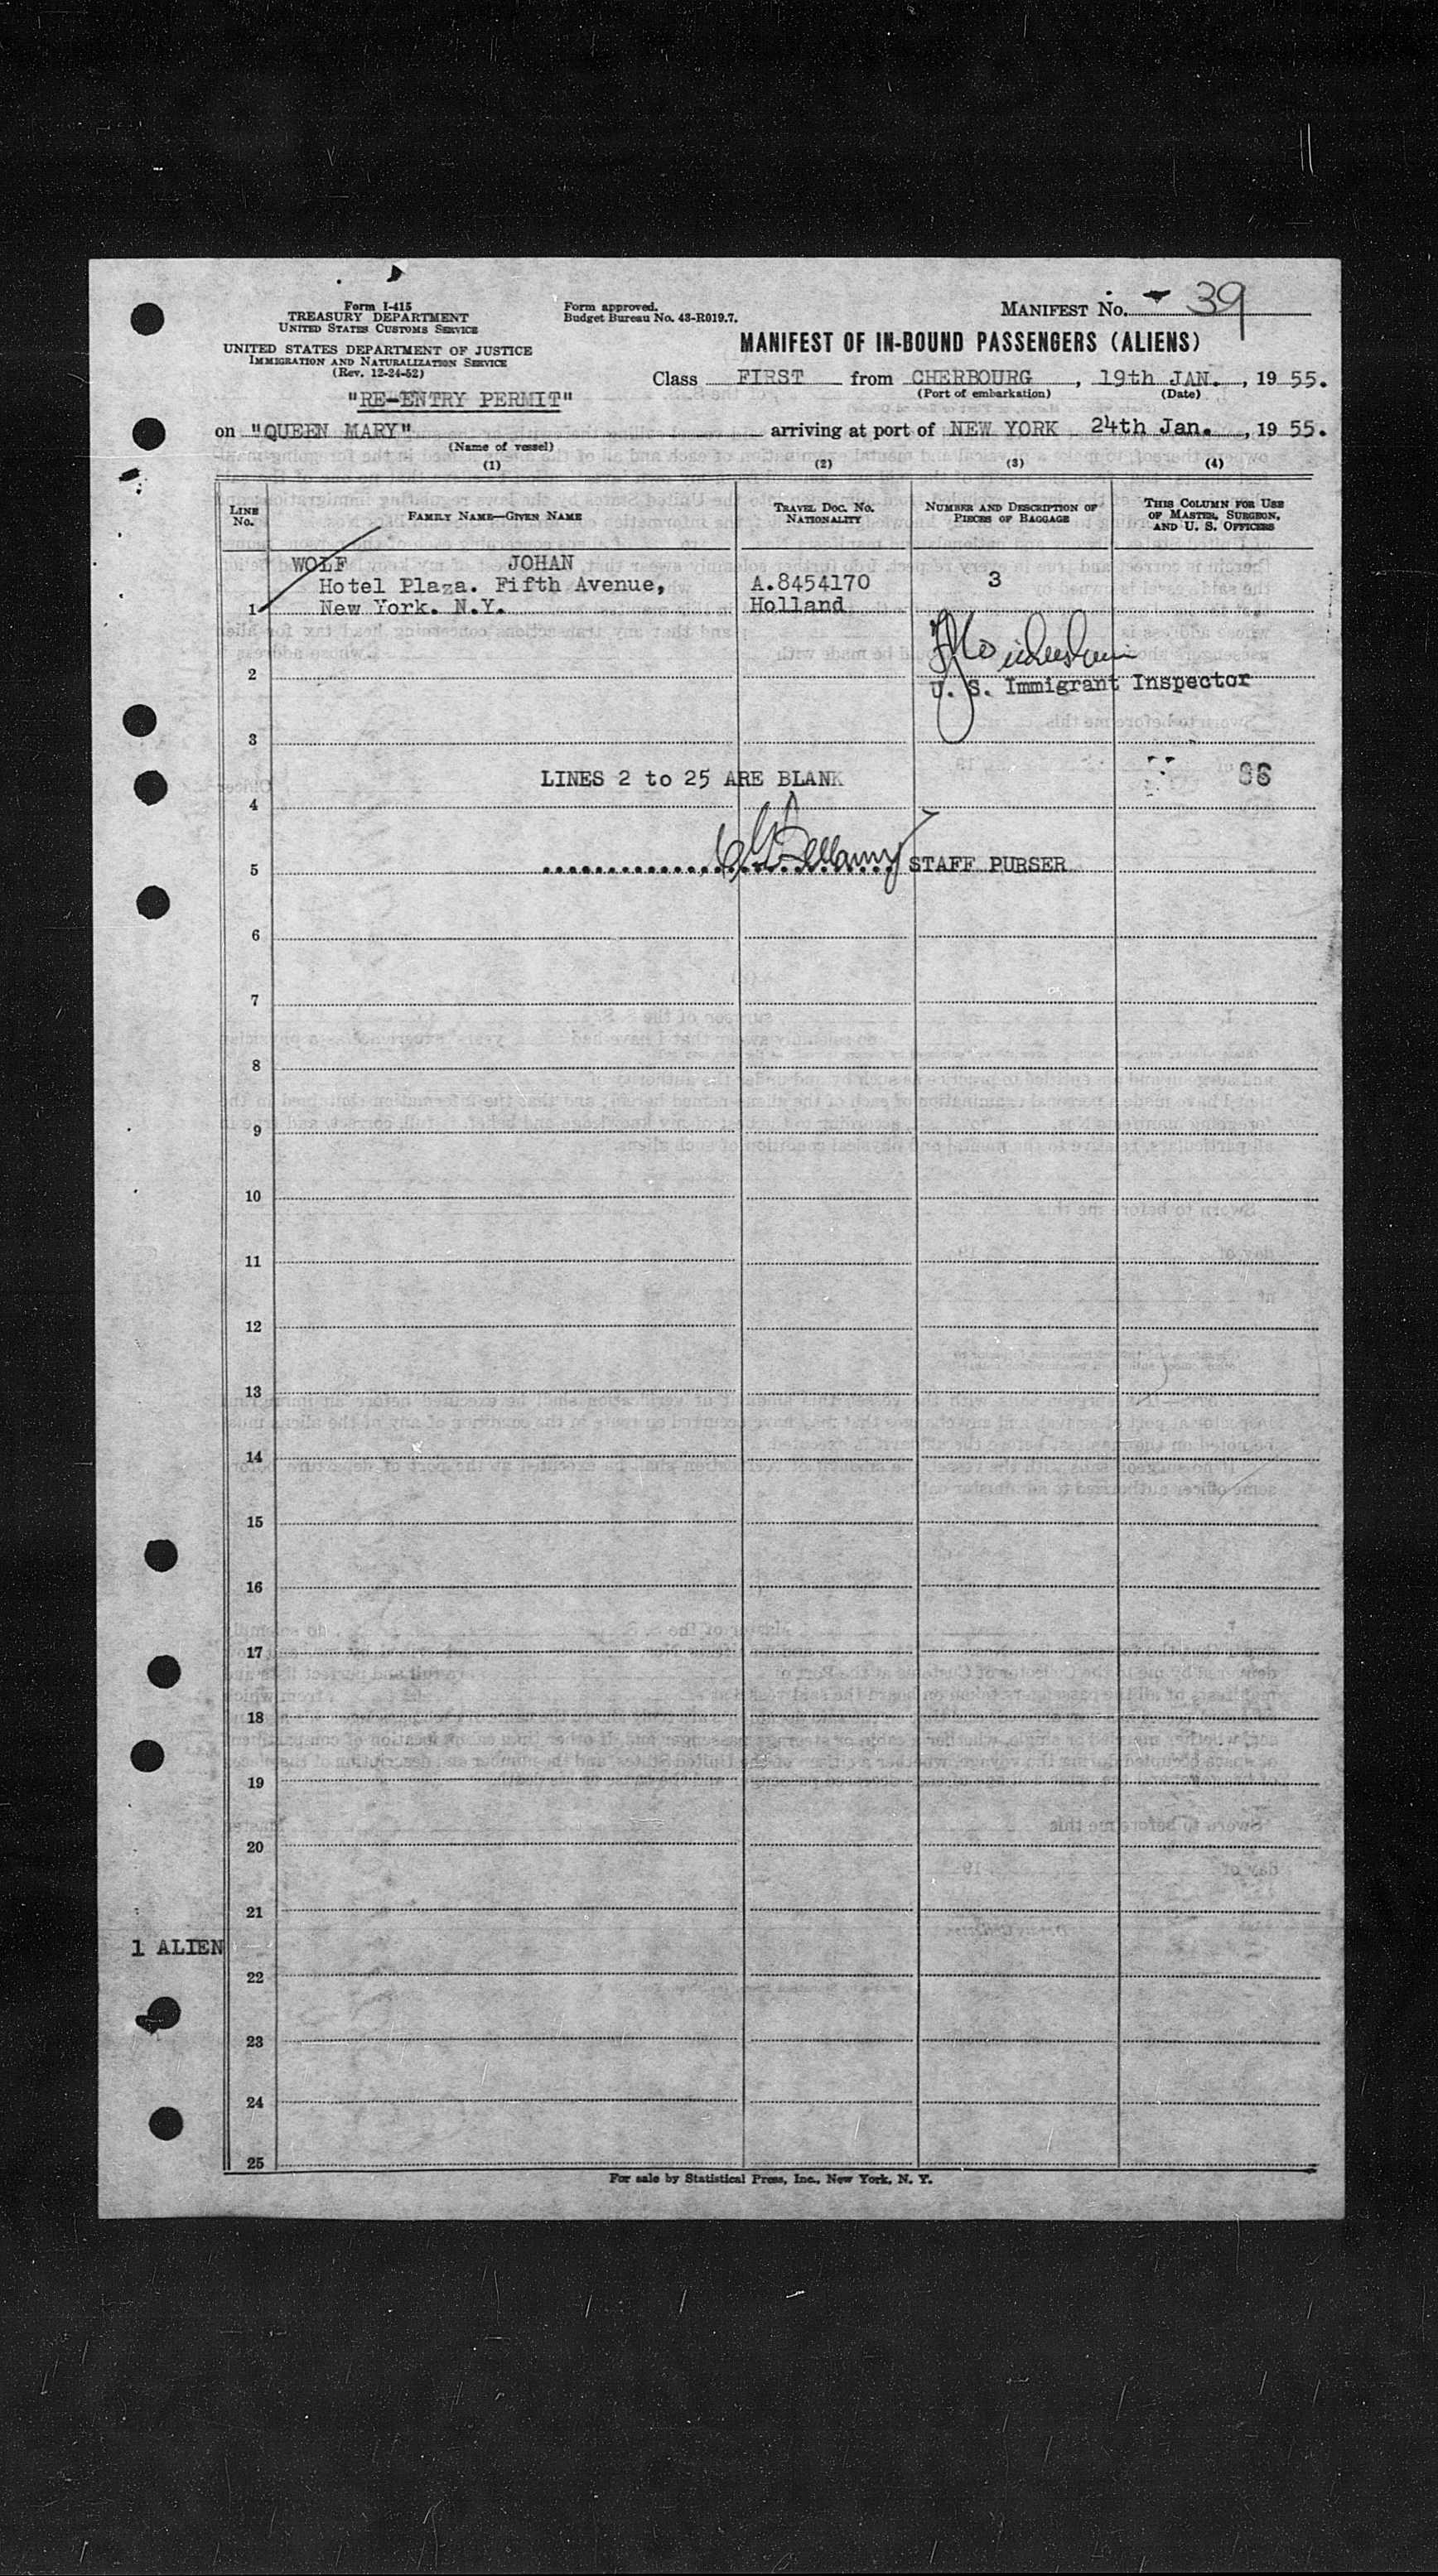 Form I-415
TREASURY DEPARTMENT
UNITED STATES CUSTOMS SERVICE
UNITED STATES DEPARTMENT OF JUSTICE
IMMIGRATION AND NATURALIZATION SERVICE
(Rev. 12-24-52)
Form approved.
Budget Bureau No. 43-R019.7.
MANIFEST NO. 39
MANIFEST OF IN-BOUND PASSENGERS (ALIENS)
Class FIRST from CHERBOURG, 19th JAN., 1955.
(Port of embarkation) (Date)
"RE-ENTRY PERMIT"
on "QUEEN MARY" arriving at port of NEW YORK 24th Jan., 1955.
(Name of vessel)
(1) (2) (3) (4)
LINE NO. FAMILY NAME—GIVEN NAME TRAVEL DOC. NO. NATIONALITY NUMBER AND DESCRIPTION OF PIECES OF BAGGAGE THIS COLUMN FOR USE OF MASTER, SURGEON, AND U. S. OFFICERS
WOLF JOHAN
Hotel Plaza. Fifth Avenue, A.8454170 3
1 New York. N.Y. Holland
2
U. S. Immigrant Inspector
3
LINES 2 to 25 ARE BLANK
4
5 Bellamy STAFF PURSER
6
7
8
9
10
11
12
13
14
15
16
17
18
19
20
21
1 ALIEN
22
23
24
25
For sale by Statistical Press, Inc., New York, N. Y.